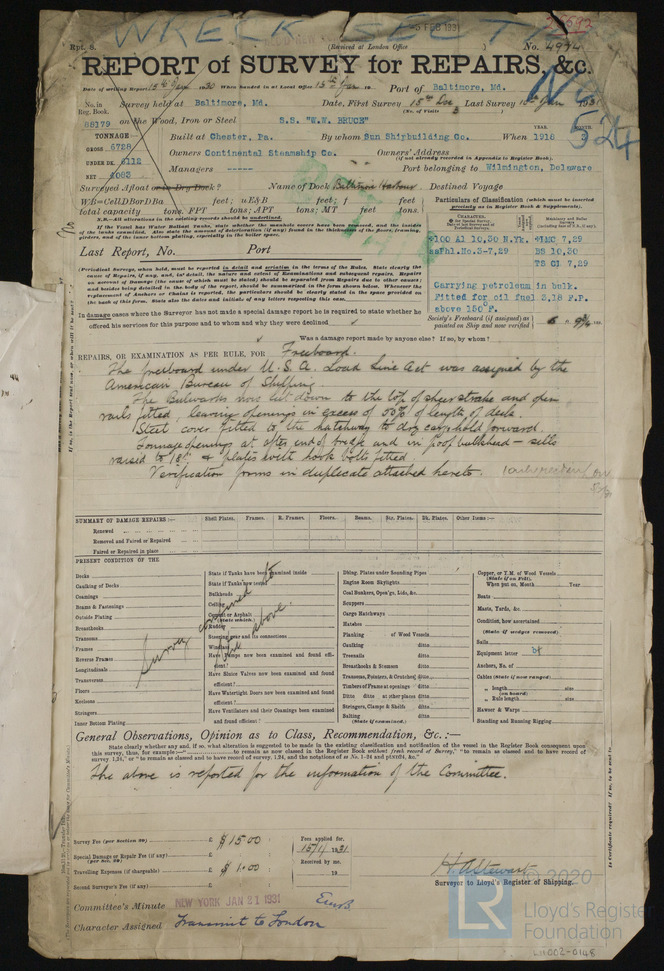 WRECK SECT
5 FEB 1931
Rpt. 8.
(Received at London Office
)
No. 4974
REPORT of SURVEY for REPAIRS, &c.
Date of writing Report 15th Jan 1930 When handed in at Local Office 15th Jan 19 Port of Baltimore, Md.
No. in Reg. Book.
Survey held at Baltimore, Md. Date, First Survey 15th Dec Last Survey 10th Jan 1931
(No. of Visits 3
88179 on the Wood, Iron or Steel S.S. "W.W. BRUCE"
524
TONNAGE
GROSS 6728
UNDER DK. 6112
NET 4083
Built at Chester, Pa. By whom Sun Shipbuilding Co. When 1918 3
YEAR. MONTH.
Owners Continental Steamship Co. Owners' Address
(if not already recorded in Appendix to Register Book.)
Managers ----- Port belonging to Wilmington, Delaware
Surveyed Afloat or in Dry Dock? Name of Dock Baltimore Harbour Destined Voyage
WB=CellDBorDBa feet; uE&B feet; f feet
total capacity tons. FPT tons; APT tons; MT feet tons.
N.B.—All alterations in the existing records should be underlined.
Particulars of Classification (which must be inserted precisely as in Register Book & Supplements).
Last Report, No. Port
+100 A1 10,30 N.Yk. +LMC 7,29
ssPhl.No.3-7,29 BS 10,30
TS Cl 7,29
Carrying petroleum in bulk.
Fitted for oil fuel 3,18 F.P.
above 150°F.
Society's Freeboard (if assigned) as painted on Ship and now verified
In damage cases where the Surveyor has not made a special damage report he is required to state whether he
offered his services for this purpose and to whom and why they were declined
Was a damage report made by anyone else? If so, by whom?
REPAIRS, OR EXAMINATION AS PER RULE, FOR Freeboard.
The freeboard under U.S.A. Load Line Act was assigned by the
American Bureau of Shipping.
The Bulwarks now cut down to the top of sheerstrake and open
rails fitted, leaving openings in excess of 50% of length of deck.
Steel cover fitted to the hatchway to dry cargo hold forward.
Tonnage openings at after end of bridge and in poop bulkhead — sills
raised to 18" & plates with hook bolts fitted.
Verification forms in duplicate attached hereto.
SUMMARY OF DAMAGE REPAIRS:—
Shell Plates. Frames. R. Frames. Floors. Beams. Str. Plates. Dk. Plates. Other Items:—
Renewed
Removed and Faired or Repaired
Faired or Repaired in place
PRESENT CONDITION OF THE
Decks
Caulking of Decks
Coamings
Beams & Fastenings
Outside Plating
Breasthooks
Transoms
Frames
Reverse Frames
Longitudinals
Transverses
Floors
Keelsons
Stringers
Inner Bottom Plating
Survey confined to the above.
State if Tanks have been examined inside
State if Tanks now tested
Bulkheads
Ceiling
Cement or Asphalt
(State which)
Rudder
Steering gear and its connections
Windlass
Have Pumps now been examined and found efficient?
Have Sluice Valves now been examined and found efficient?
Have Watertight Doors now been examined and found efficient?
Have Ventilators and their Coamings been examined and found efficient?
Dbing. Plates under Sounding Pipes
Engine Room Skylights
Coal Bunkers, Open'gs, Lids, &c.
Scuppers
Cargo Hatchways
Hatches
Planking of Wood Vessels
Caulking ditto
Treenails ditto
Breasthooks & Stemson ditto
Transoms, Pointers, & Crutches ditto
Timbers of Frame at openings ditto
Ditto ditto at other places ditto
Stringers, Clamps & Shelfs ditto
Salting ditto
(State if examined.)
Copper, or Y.M. of Wood Vessels
(State if on Felt).
When put on, Month Year
Boats
Masts, Yards, &c.
Condition, how ascertained
(State if wedges removed)
Sails
Equipment letter
Anchors, No. of
Cables (State if now ranged)
„ length size
(on board)
„ Rule length size
Hawser & Warps
Standing and Running Rigging
General Observations, Opinion as to Class, Recommendation, &c.:—
The above is reported for the information of the Committee.
Survey Fee (per Section 29) £ $15.00
Special Damage or Repair Fee (if any) £
(per Sec. 29)
Travelling Expenses (if chargeable) £ $1.00
Second Surveyor's Fee (if any) £
Fees applied for.
15/1/1931
Received by me.
19
H. A. Stewart
Surveyor to Lloyd's Register of Shipping.
Committee's Minute NEW YORK JAN 21 1931
Character Assigned Transmit to London
© 2020
LR
Lloyd's Register
Foundation